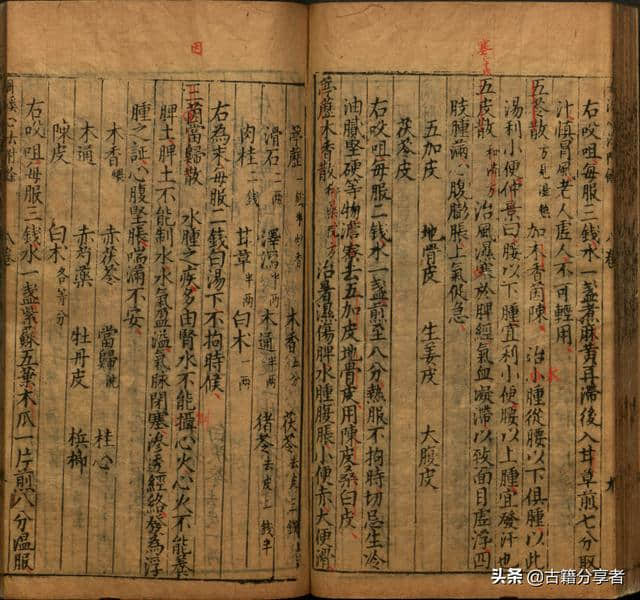 右㕮咀每服三錢水一盞煮麻黃再滯後入甘草煎七分取
汁慎冒風老人虛人不可輕用
五苓散 加木香茵陳 治小腫從腰以下俱腫以此
湯利小便仲景曰腰以下腫宜利小便腰以上腫宜發汗也
五皮散 和濟方 治風濕寒於脾經氣血凝滯以致面目虛浮四
肢腫滿心腹膨脹上氣促急
五加皮 地骨皮 生姜皮 大腹皮
茯苓皮
右㕮咀每服二錢水一盞煎至八分熱服不拘時切忌生冷
油膩堅硬等物澹寮去五加皮地骨皮用陳皮桑白皮
木香散 治暑濕傷脾水腫腹脹小便赤大便滑
木香 茯苓
滑石二两 澤瀉一两 木通半两 猪苓去皮
肉桂二錢 甘草半两 白术一两
右為末每服二錢白湯下不拘時候
當歸散 水腫之疾多由腎水不能攝心火心火不能養
脾土脾土不能制水水氣盈溢氣脉閉塞滲透經絡發為浮
腫之証心腹堅脹喘滿不安
木香 赤茯苓 當歸 桂心
木通 赤芍藥 牡丹皮 梹榔
陳皮 白术各等分
右㕮咀每服三錢水一盞紫蘇五葉木瓜一片煎八分温服
卷
因
头条 @古籍分享者